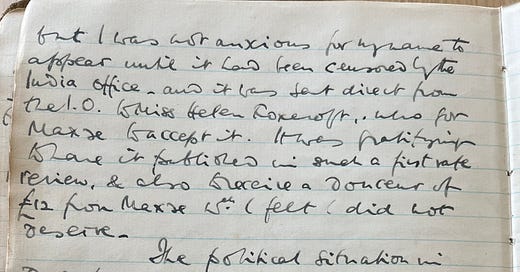 but I was not anxious for my name to
appear until it had been censored by the
India Office - and it was sent direct from
the I.O. to Miss Helen, who for
Maxse to accept it. It was gratifying
to have it published in such a first rate
review, & also to receive a douceur of
£12 from Maxse wch I felt I did not
deserve -
The political situation in